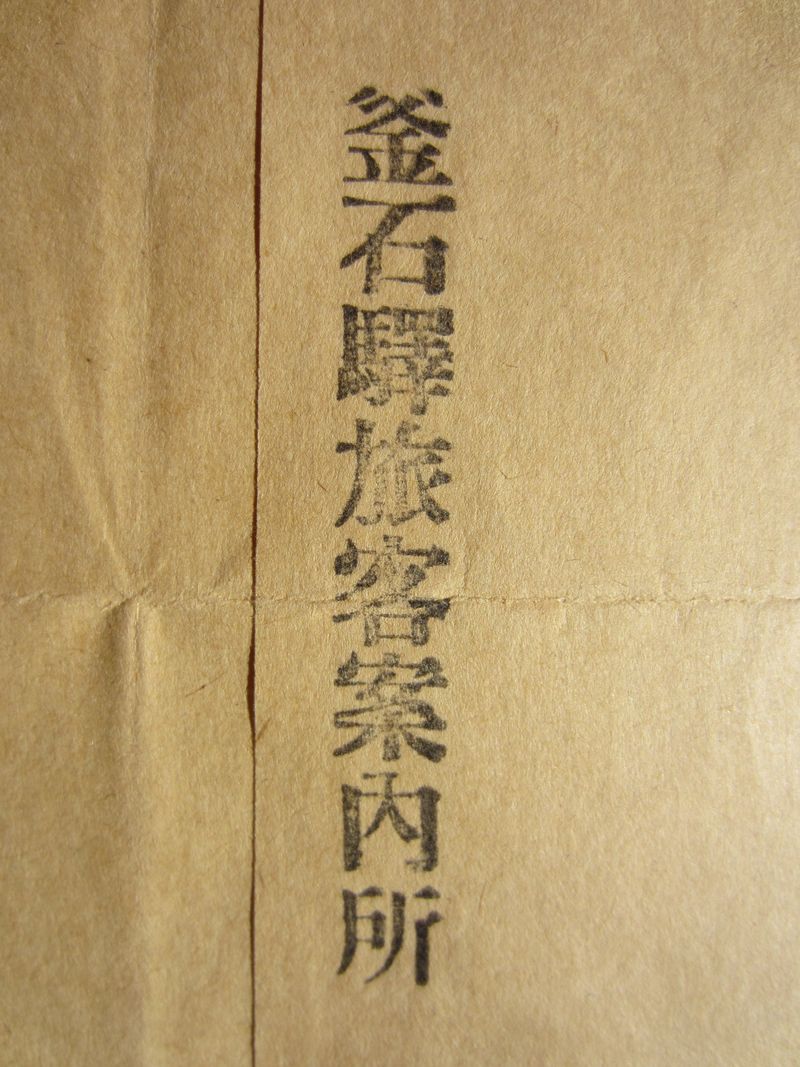 釜石驛旅客案内所